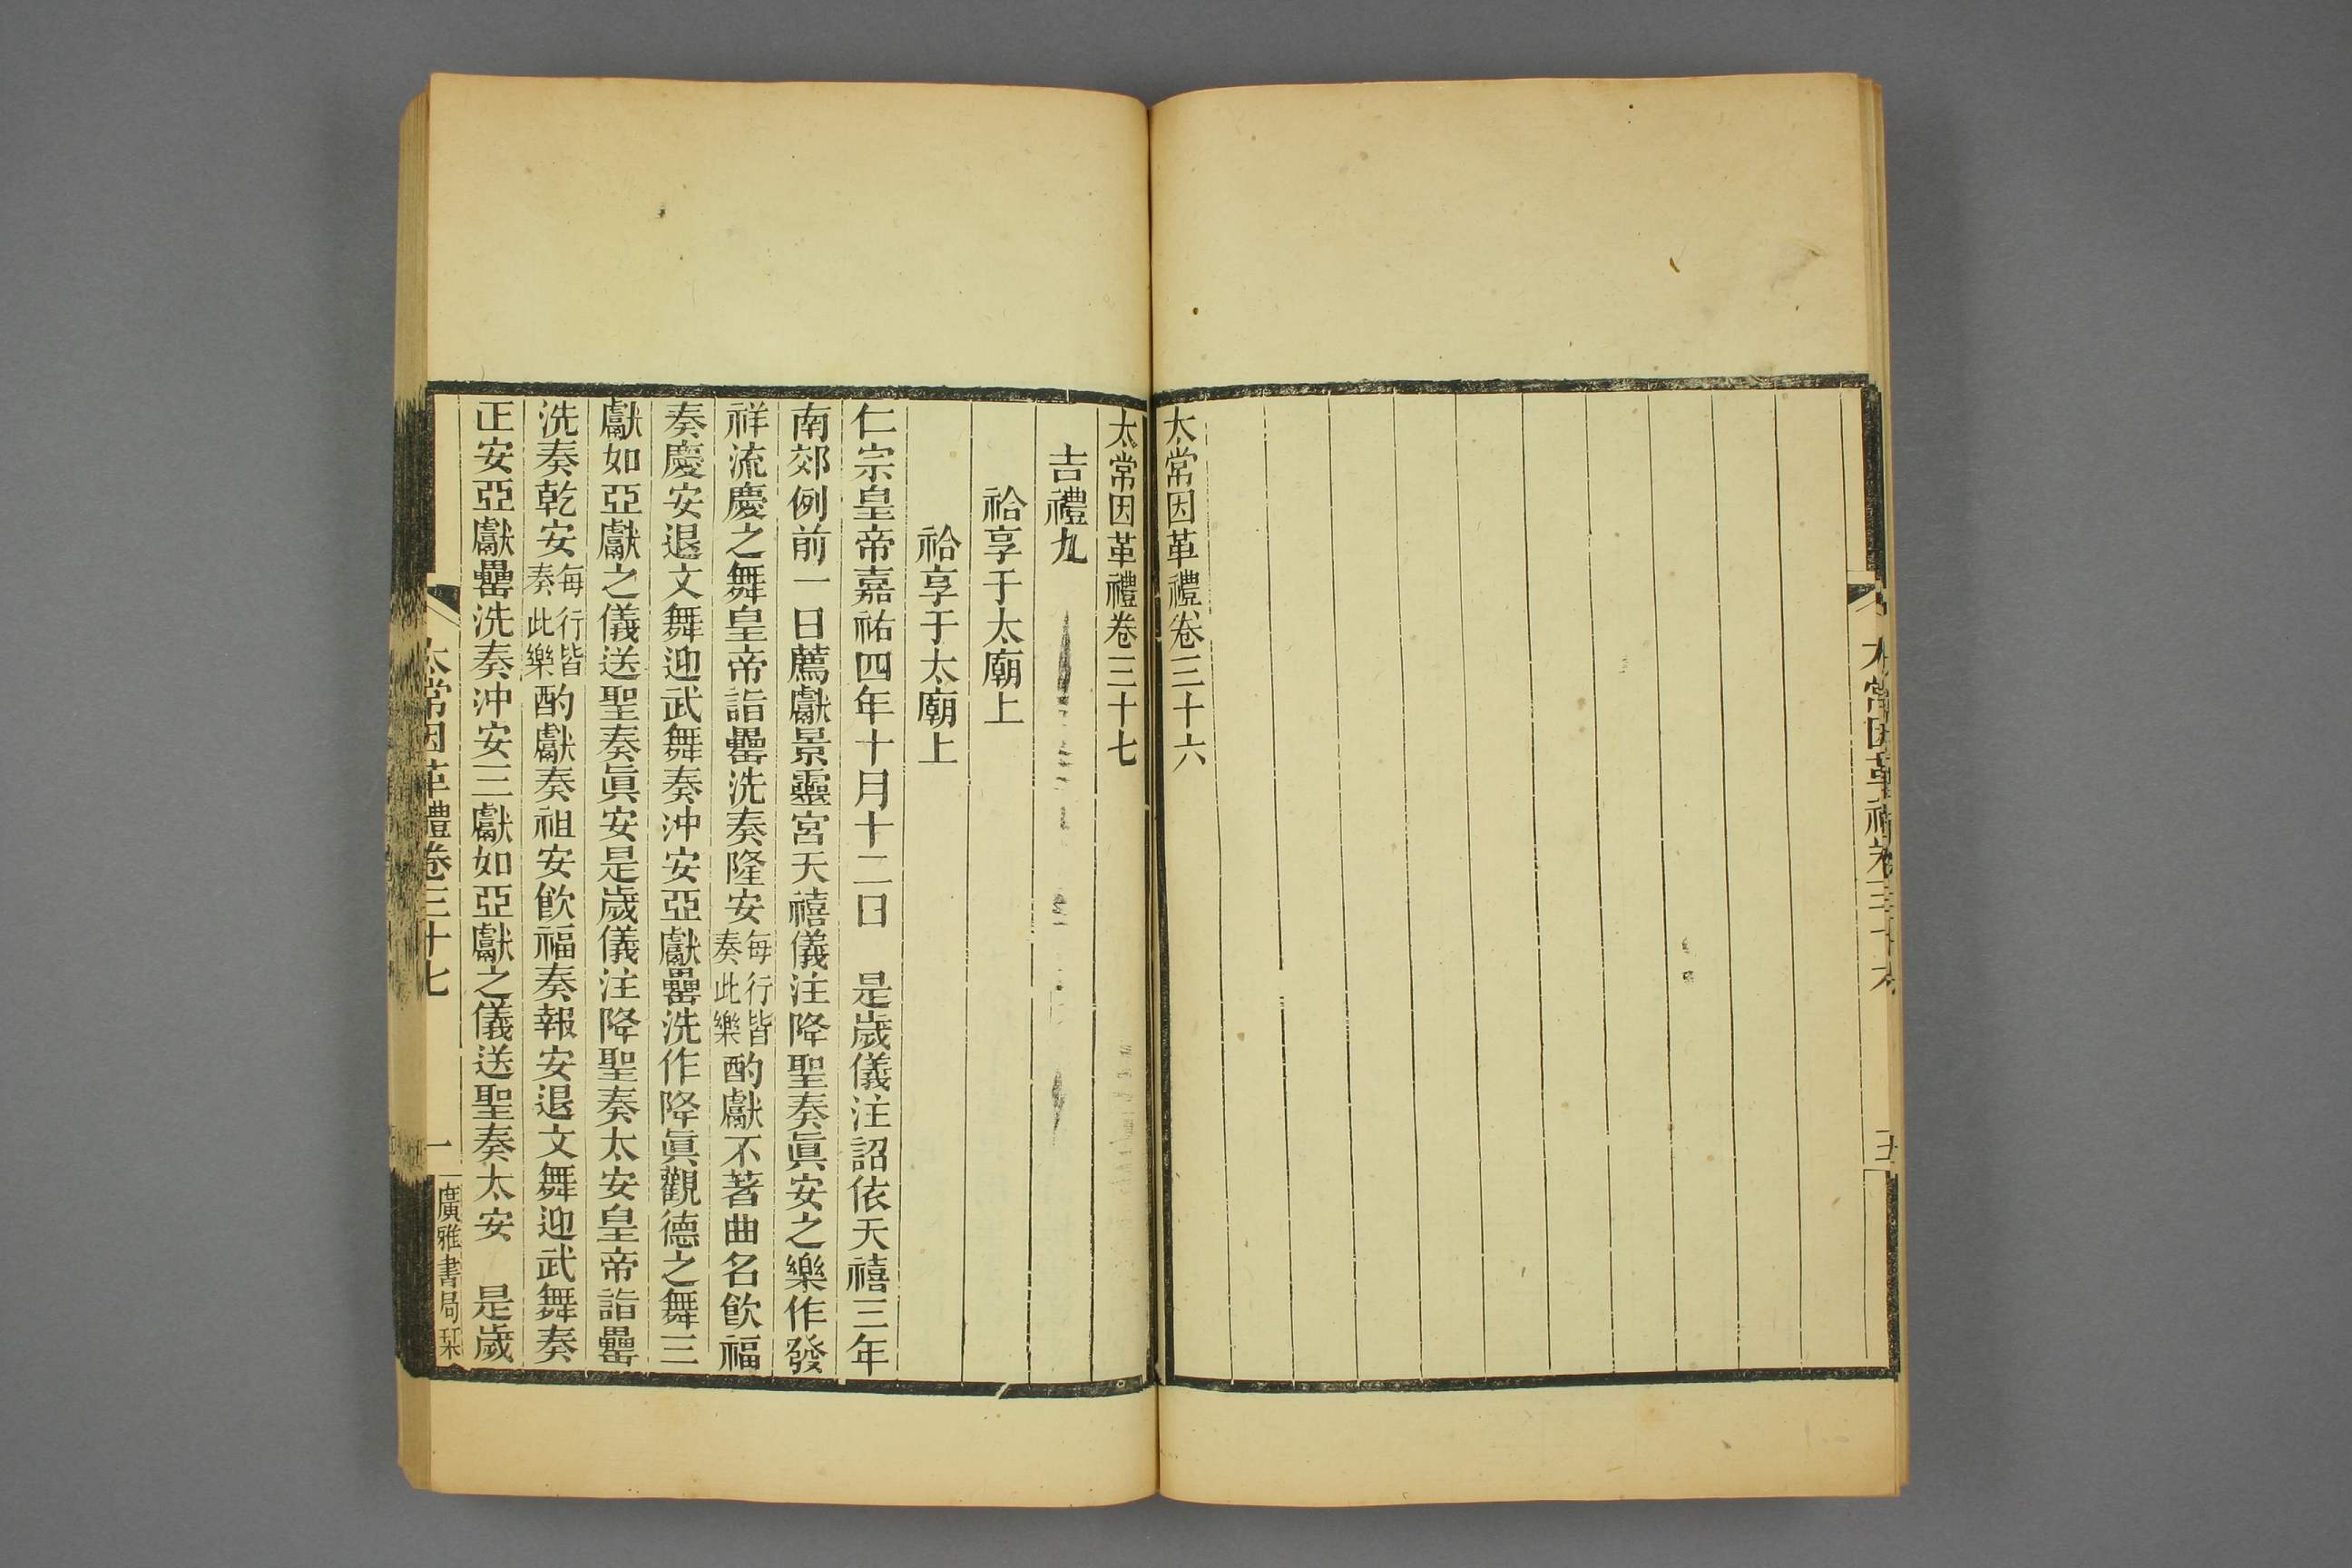 太常因革禮卷三十六
五
太常因革禮卷三十六
太常因革禮卷三十七
吉禮九
祫享于太廟上
祫享于太廟上
仁宗皇帝嘉祐四年十月十二日　是歲儀注詔依天禧三年
南郊例前一日薦獻景靈宮天禧儀注降聖奏眞安之樂作發
祥流慶之舞皇帝詣罍洗奏隆安每行皆奏此樂酌獻不著曲名飮福
奏慶安退文舞迎武舞奏沖安亞獻罍洗作降眞觀德之舞三
獻如亞獻之儀送聖奏眞安是歲儀注降聖奏太安皇帝詣罍
洗奏乾安每行皆奏此樂酌獻奏祖安飮福奏報安退文舞迎武舞奏
正安亞獻罍洗奏沖安三獻如亞獻之儀送聖奏太安　是歲
太常因革禮卷三十七
一
廣雅書局栞